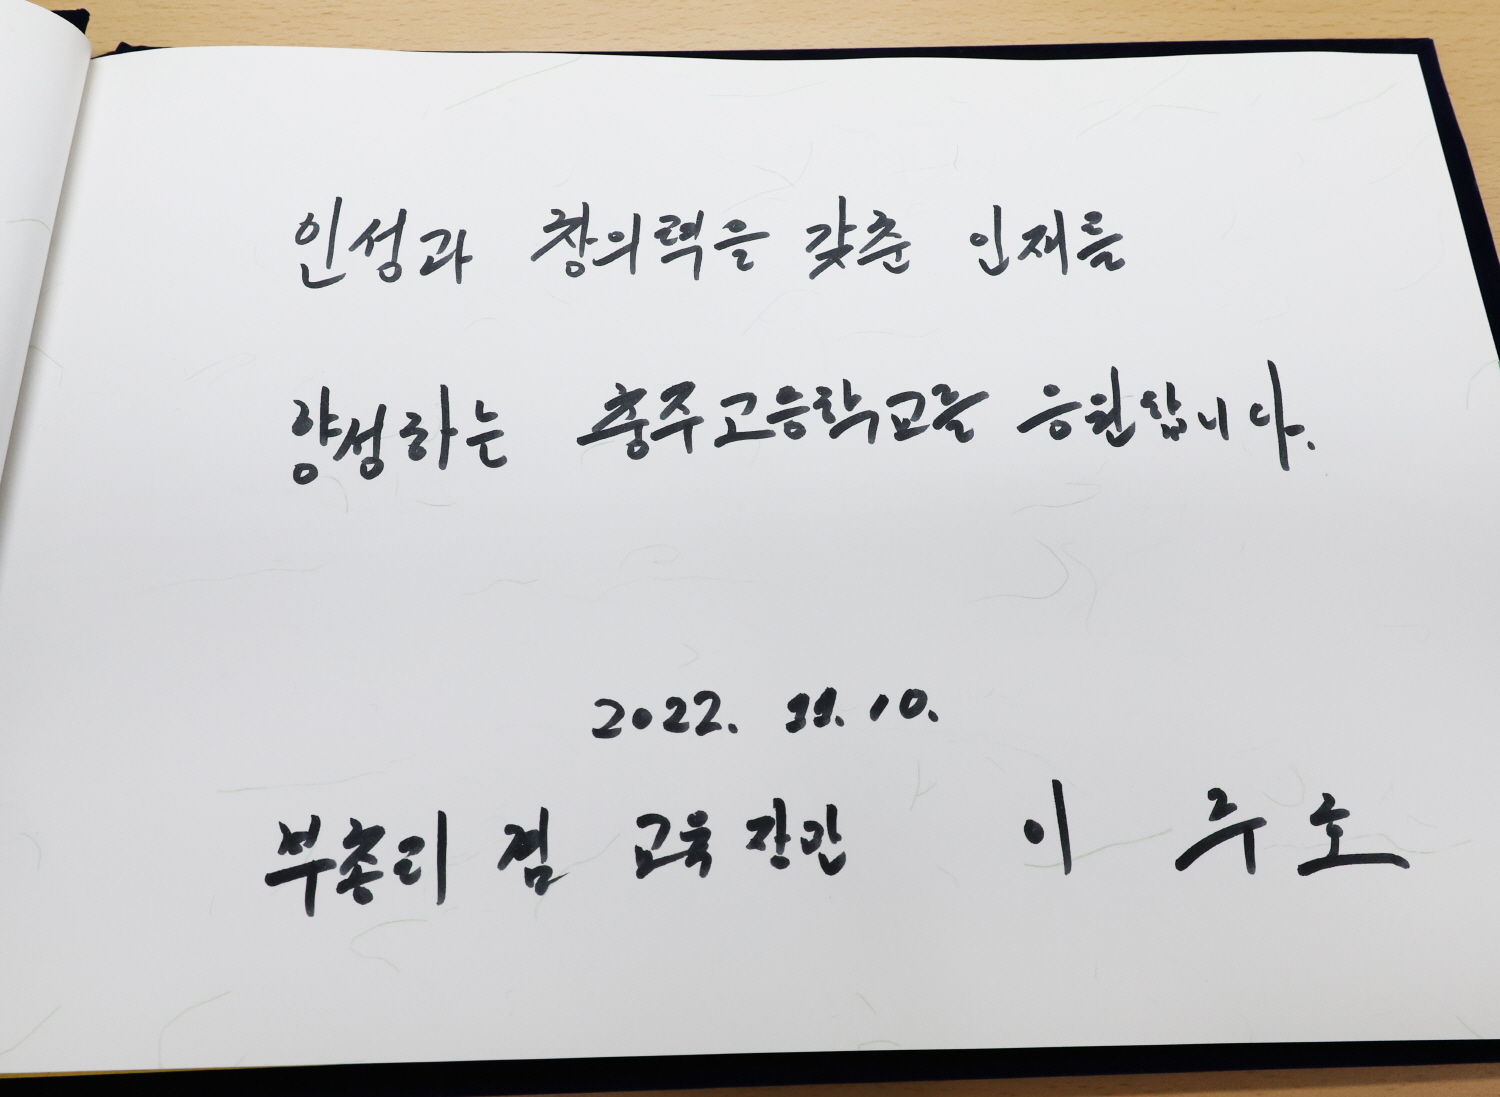 인성과 창의력을 갖춘 인재를
양성하는 충주고등학교를 응원합니다.
2022. 11. 10.
부총리 겸 교육장관 이 주호